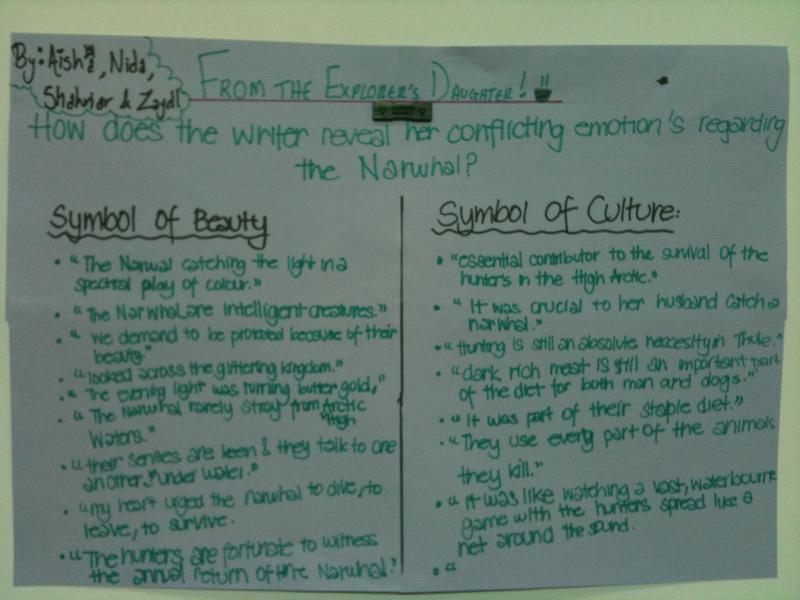 By: Aisha, Nida,
Shahriar & Zaydl
FROM THE EXPLORER'S DAUGHTER!
How does the writer reveal her conflicting emotion's regarding
the Narwhal?
Symbol of Beauty
• "The Narwal catching the light in a
spectral play of colour."
• "The Narwhal are intelligent creatures."
• "we demand to be protected because of their
beauty."
• "looked across the glittering kingdom."
• "The evening light was turning butter gold,"
• "The Narwhal rarely stray from High Arctic
Waters."
• "their senses are keen & they talk to one
another under water."
• "my heart urged the narwhal to dive, to
leave, to survive.
• "The hunters are fortunate to witness
the annual return of the Narwhal!
Symbol of Culture:
• "essential contributor to the survival of the
hunters in the High Arctic."
• "It was crucial to her husband catch a
narwhal."
• "Hunting is still an absolute necessity in Thule."
• "dark rich meat is still an important part
of the diet for both man and dogs."
• "It was part of their staple diet."
• "They use every part of the animals
they kill."
• "It was like watching a vast, waterbourne
game with the hunters spread like a
net around the sound.
• "